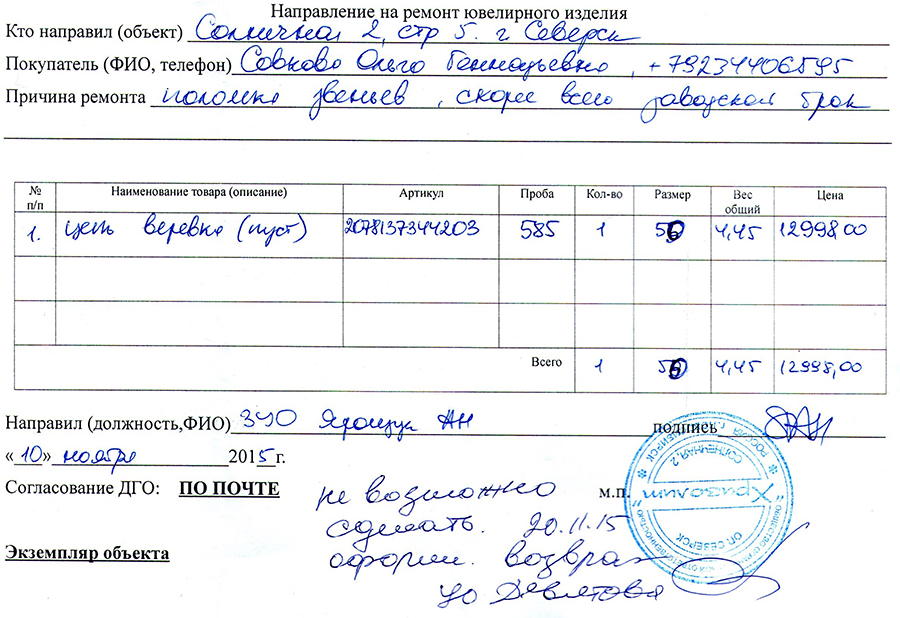 Направление на ремонт ювелирного изделия
Кто направил (объект) Солнечная 2, стр 5. г Северск
Покупатель (ФИО, телефон) Совкова Ольга Геннадьевна, +79234406595
Причина ремонта поломка звеньев, скорее всего заводской брак
№ п/п Наименование товара (описание) Артикул Проба Кол-во Размер Вес общий Цена
1. цепь веревка (пуст) 2078137344203 585 1 50 4,45 12998,00
Всего 1 50 4,45 12998,00
Направил (должность,ФИО) ЗУО Ярощук АН подпись
«10» ноября 2015 г.
Согласование ДГО: ПО ПОЧТЕ м.п.
не возможно
сделать. 20.11.15
Экземпляр объекта
оформи. возврат
УО Девятова
Хризолит
СОЛНЕЧНАЯ, 2
ОП СЕВЕРСК